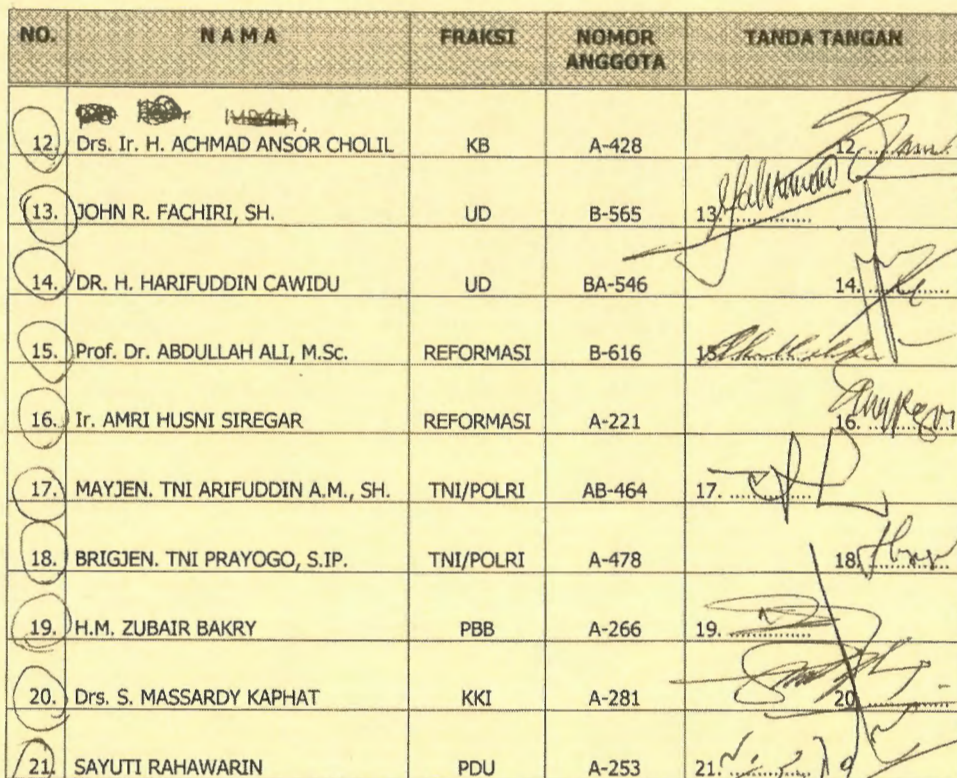 NO. NAMA FRAKSI NOMOR ANGGOTA TANDA TANGAN
12. Drs. Ir. H. ACHMAD ANSOR CHOLIL KB A-428 12. .........
13. JOHN R. FACHIRI, SH. UD B-565 13. .........
14. DR. H. HARIFUDDIN CAWIDU UD BA-546 14. .........
15. Prof. Dr. ABDULLAH ALI, M.Sc. REFORMASI B-616 15. .........
16. Ir. AMRI HUSNI SIREGAR REFORMASI A-221 16. .........
17. MAYJEN. TNI ARIFUDDIN A.M., SH. TNI/POLRI AB-464 17. .........
18. BRIGJEN. TNI PRAYOGO, S.IP. TNI/POLRI A-478 18. .........
19. H.M. ZUBAIR BAKRY PBB A-266 19. .........
20. Drs. S. MASSARDY KAPHAT KKI A-281 20. .........
21. SAYUTI RAHAWARIN PDU A-253 21. .........